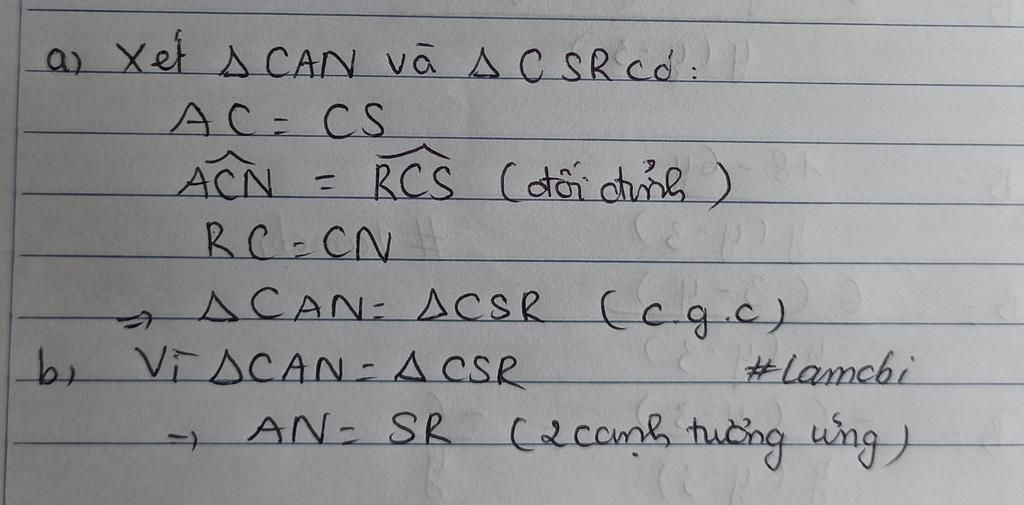 a) Xét Δ CAN và Δ CSR có:
AC = CS
\widehat{ACN} = \widehat{RCS} (đối đỉnh)
RC = CN
=> Δ CAN = Δ CSR (c.g.c)
b, Vì Δ CAN = Δ CSR #lamcbi
→ AN = SR (2 cạnh tương ứng)